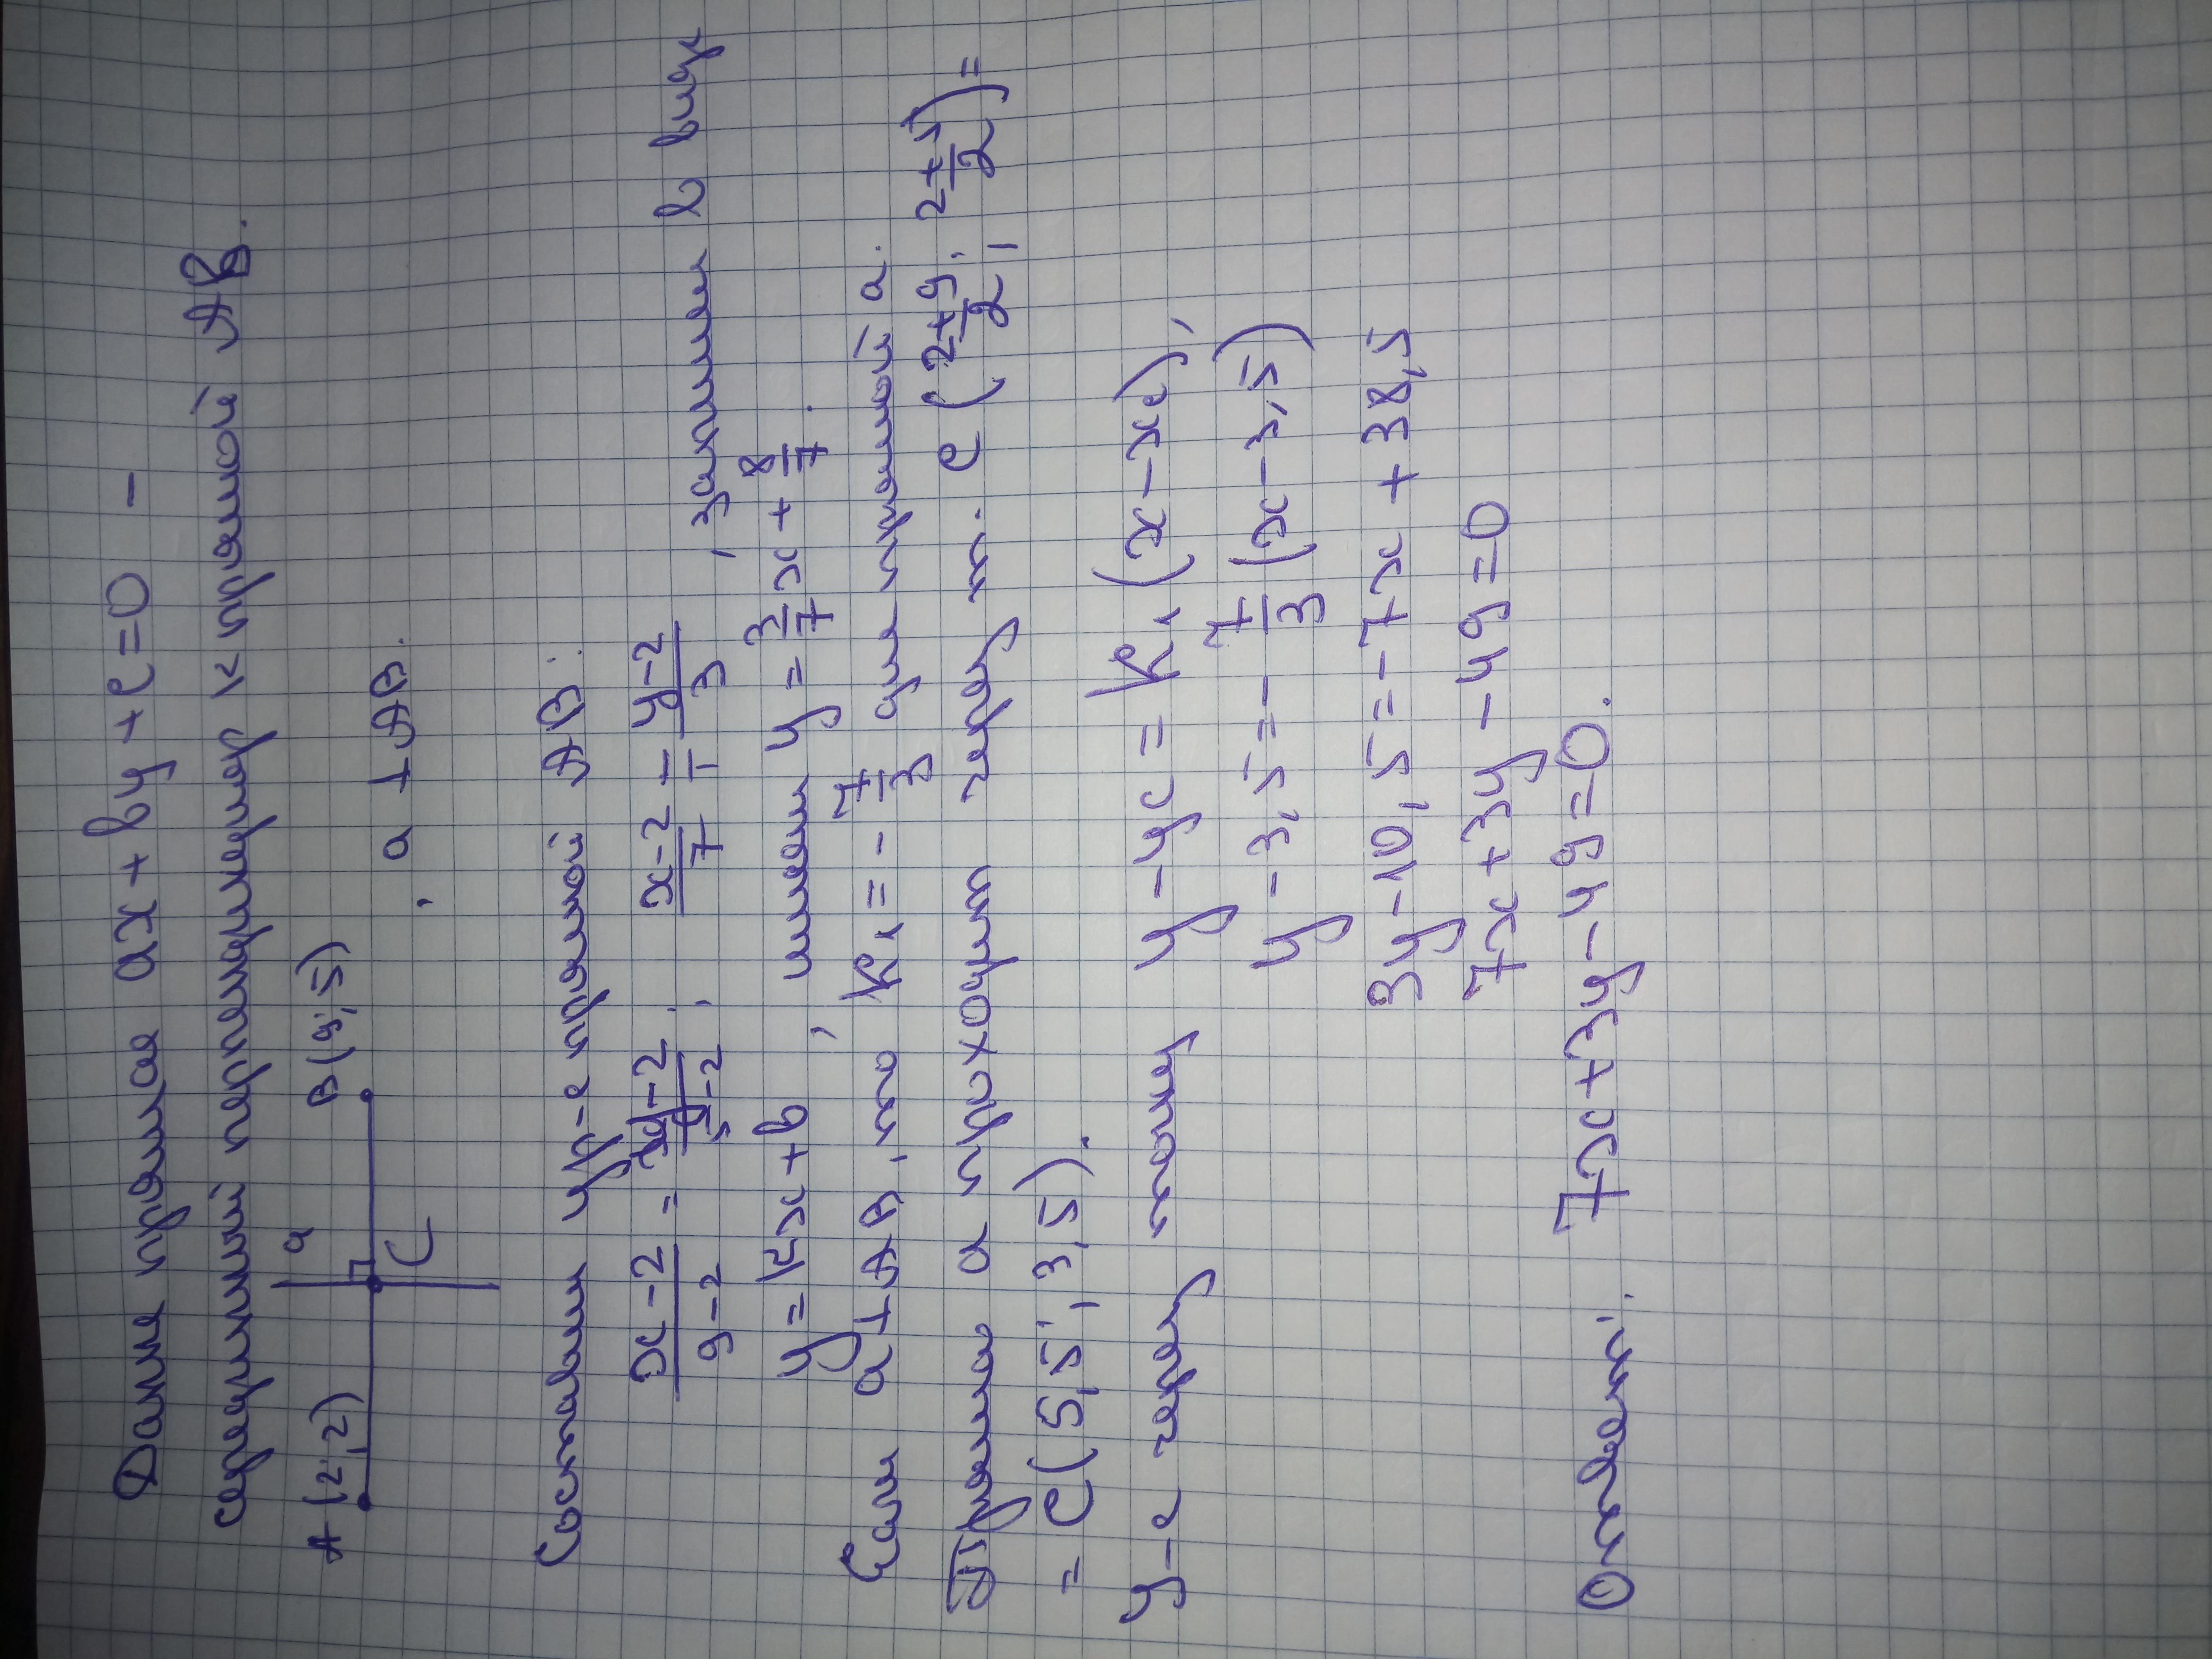 Дана прямая ax + by + c = 0 –
серединный перпендикуляр к прямой AB.
A (2; 2) a B (9; 5)
C , a ⊥ AB.
Составим ур-е прямой AB:
(x – 2)/(9 – 2) = (y – 2)/(5 – 2); (x – 2)/7 = (y – 2)/3, запишем в виде
y = kx + b, имеем y = 3/7 x + 8/7.
Если a ⊥ AB, то k₁ = – 7/3 для прямой a.
Прямая a проходит через т. C ((2+9)/2; (2+5)/2) =
= C (5,5; 3,5).
у-е через точку y – yc = k₁ (x – xc),
y – 3,5 = – 7/3 (x – 3,5)
3y – 10,5 = – 7x + 38,5
7x + 3y – 49 = 0
Ответ: 7x + 3y – 49 = 0.